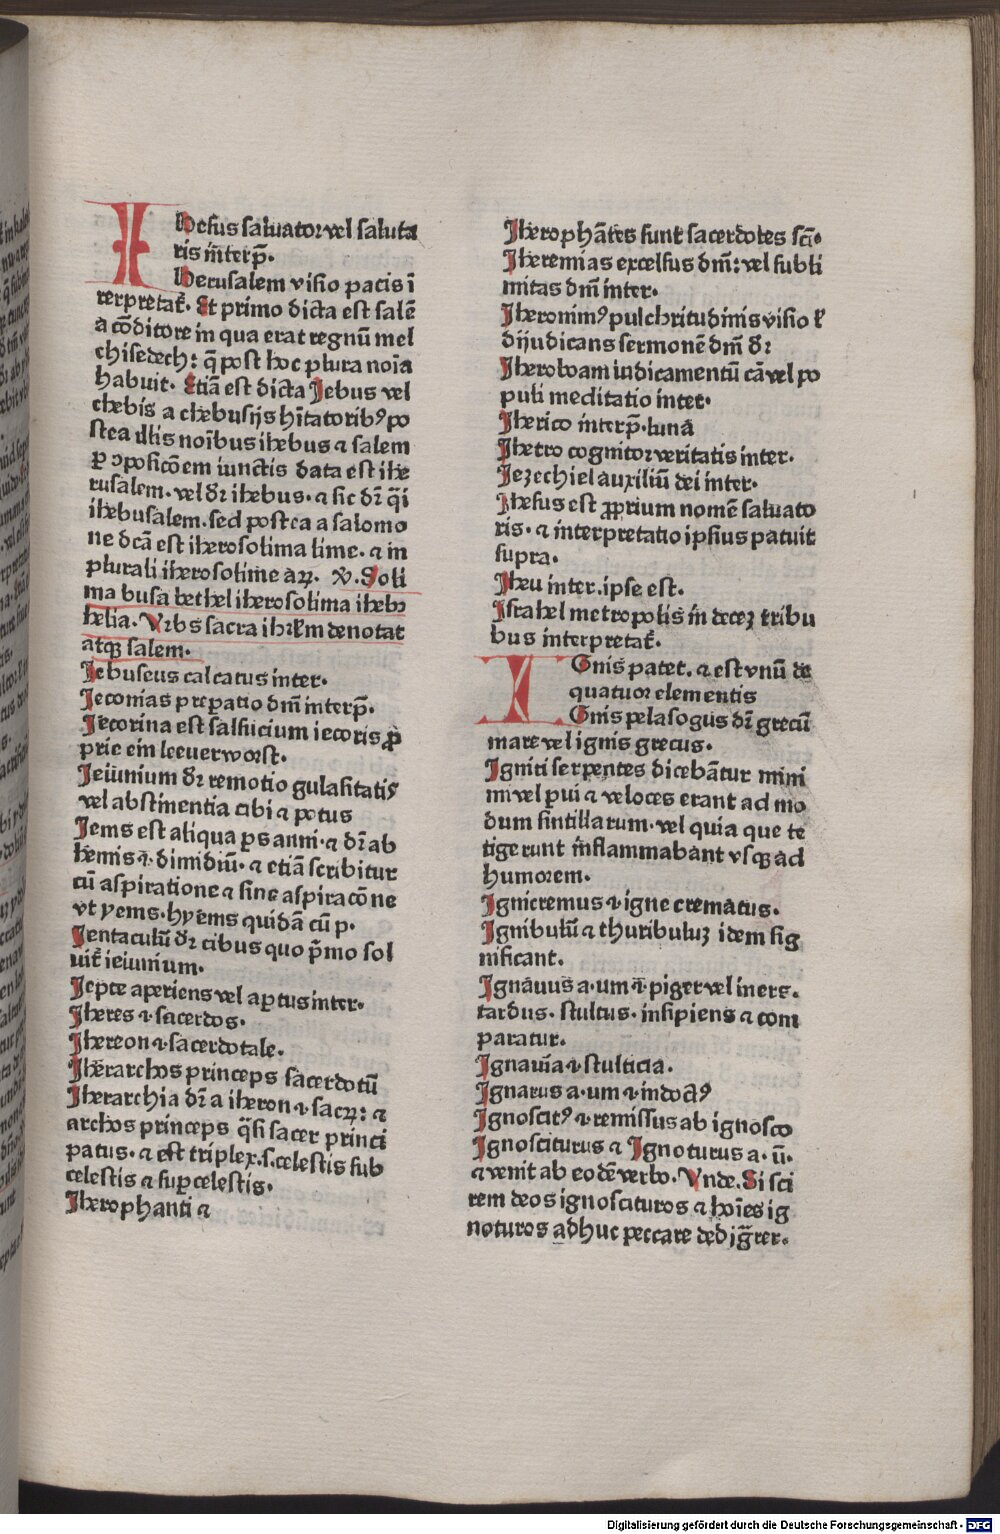 IHesus saluator vel saluta
ris int̄erp̄.
Iherusalem visio pacis ī
terpretat̄. Et primo dicta est salē
a cōditore in qua erat regnū mel
chisedech: q̄ post hoc plura noīa
habuit. Etiā est dicta Jebus vel
chebis a chebusijs hītatoribꝰ po
stea dtis noībus ihebus ⁊ salem
ꝑ ↄposicōem iunctis data est ihe
rusalem. vel dr̄ ihebus. ⁊ sic dr̄ q̄i
ihebusalem. sed postea a salomo
ne dcā est iherosolima lime. ⁊ in
plurali iherosolime aꝝ. Ꝟ. Soli
ma busa bethel iherosolima ihebꝫ
helia. Vrbs sacra ihrl̄m denotat
atqꝫ salem.
Jebuseus calcatus inter.
Jeconias preꝑatio dm̄ interp̄.
Jecorina est salsucium iecoris ꝓ
prie ein leeuerworst.
Jeiūnium dr̄ remotio gulasitatꝭ
vel abstinentia cibi ⁊ potus
Jems est aliqua ꝑs anni. ⁊ dr̄ ab
hemis .i. dimidiū. ⁊ etiā scribitur
cū aspiratione ⁊ sine aspiracōne
vt yems. hyems quidā cū p.
Jentaculū dr̄ cibus quo p̄mo sol
uit̄ ieiunium.
Jepte aperiens vel aꝑtus inter.
Jheres .i. sacerdos.
Jhereon .i. sacerdotale.
Jherarchos princeps sacerdotū
Jherarchia dr̄ a iheron .i. sacꝝ: ⁊
archos princeps q̄si sacer princi
patus. ⁊ est triplex. s. celestis sub
celestis ⁊ suꝑcelestis.
Jherophanti ⁊
Jherophātes sunt sacerdotes scī.
Jheremias excelsus dm̄: vel subli
mitas dm̄ inter.
Jheronimꝰ pulchritudinis visio t̄
dijudicans sermonē dm̄ dr̄
Jheroboam iudicamentū cā vel po
puli meditatio inter.
Jherico interp̄. lunā
Jhetro cognitor veritatis inter.
Jezechiel auxiliū dei inter.
Jhesus est ꝓprium nomē saluato
ris. ⁊ interpretatio ipsius patuit
supra.
Jheu inter. ipse est.
Jsrahel metropolis in decez tribu
bus interpretat̄.
IGnis patet. ⁊ est vnū de
quatuor elementis
Ignis pelasogus dr̄ grecū
mare vel ignis grecus.
Igniti serpentes dicebātur mini
mi vel ꝑui ⁊ veloces erant ad mo
dum sintillarum. vel quia que te
tigerunt inflammabant vsqꝫ ad
humorem.
Ignicremus .i. igne crematus.
Ignibulū ⁊ thuribuluꝫ idem sig
nificant.
Ignāuus a. um .i. piger vel iners.
tardus. stultus. insipiens ⁊ com
paratur.
Ignauīa .i. stulticia.
Ignarus a. um .i. indoctꝰ
Ignoscitꝰ .i. remissus ab ignosco
Ignosciturus ⁊ Ignoturus a. ū.
⁊ venit ab eodē verbo. Vnde. Si sci
rem deos ignoscituros ⁊ hoīes ig
noturos adhuc peccare dedig̃rer.
Digitalisierung gefördert durch die Deutsche Forschungsgemeinschaft - DFG